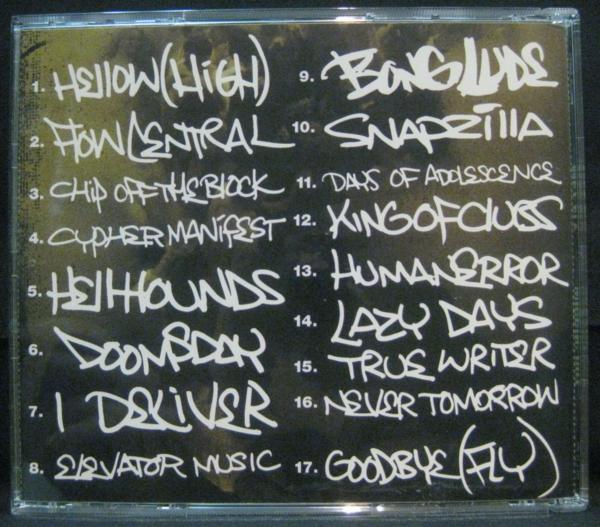 1. HEllOW (HiGH)
2. FlOW CENTRAL
3. CHiP OFF THE BlOCK
4. CYPHER MANiFEST
5. HEllHOUNDS
6. DOOMSDAY
7. I DELiVER
8. ElEVATOR MUSIC
9. BONGLUDE
10. SNAPZIllA
11. DAYS OF ADOLESCENCE
12. KING OF CluBS
13. HUMAN ERROR
14. LAZY DAYS
15. TRUE WRITER
16. NEVER TOMORROW
17. GOODBYE (FlY)